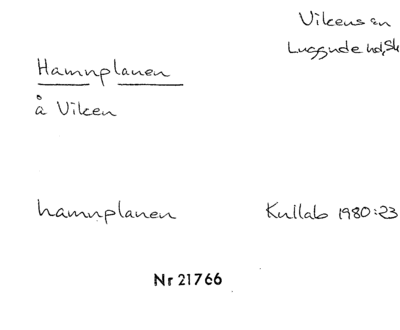 Vikens sn
Luggude hd, Sk
Hamnplanen
å Viken
hamnplanen Kullab 1980:23
Nr 21766